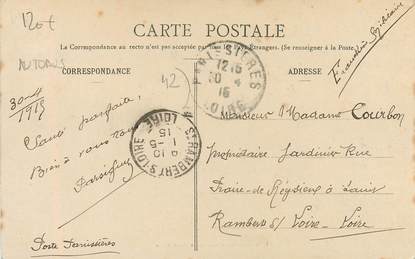 120f
CARTE POSTALE
La Correspondance au recto n'est pas acceptée par tous les Pays Étrangers. (Se renseigner à la Poste.)
CORRESPONDANCE
ADRESSE
AUTOBUS
42
Franchise Militaire
30-4
1915
Santé parfaite,
Bien à vous tous
Poste Panissières
PANISSIERES
12 15
30 - 4
15
LOIRE
ST RAMBERT-S-LOIRE
9 10
1 - 5
15
LOIRE
Monsieur & Madame Courbon
Propriétaire Jardinier Rue
à Saint
Rambert s/ Loire - Loire